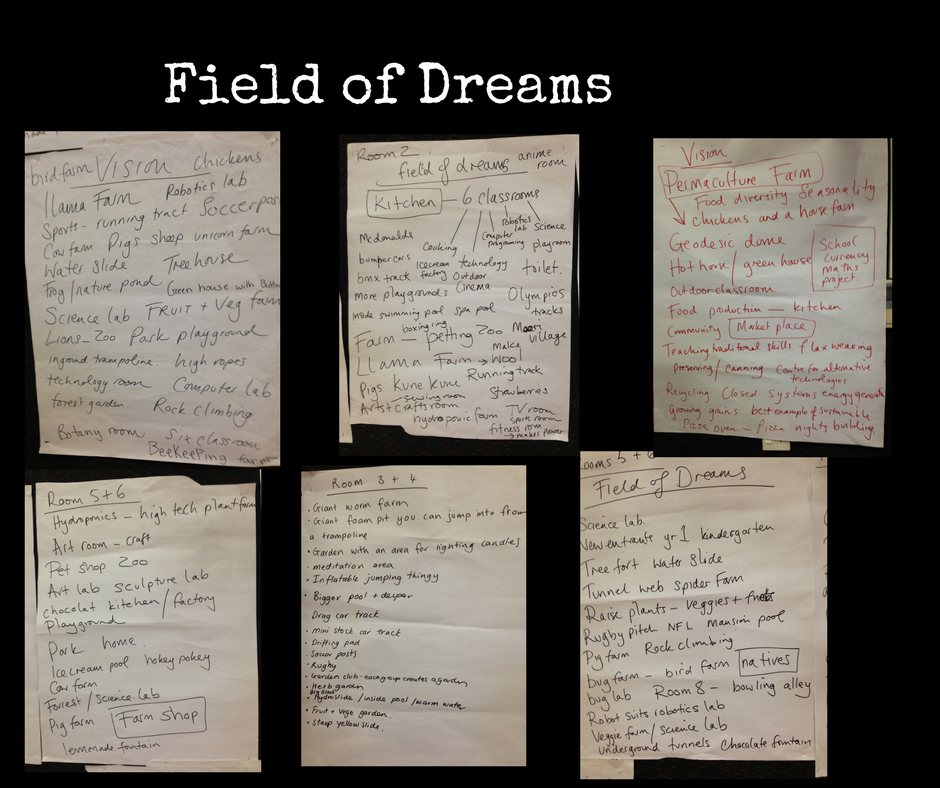 Field of Dreams
birdfarm Vision chickens
Llama Farm Robotics lab
Sports - running tract Soccerpos
Cow farm Pigs sheep unicorn farm
Water slide Treehouse
Frog/nature pond Green house with
Science lab FRUIT + Veg farm
Lions - Zoo Park playground
inground trampoline. high ropes
technology room Computer lab
forest garden Rock climbing
Botany room Six classroom
BeeKeePing farm
Room 2
field of dreams anime room
Kitchen - 6 classrooms
Robotics lab Science
Mcdonalds Cooking Computer programing playroom
bumpercars
bmx track Icecream factory technology toilet.
More playgrounds Outdoor Cinema Olympics
Inside swimming pool spa pool tracks
boxing ring
Farm - petting Zoo village
Llama Farm → Wool
Pigs Kune Kune Running track
Sewing room Strawberries
Arts + Crafts room
hydroponic farm TV room
Sports room
fitness rom
→ makes power
Vision
Permaculture Farm
Food diversity Seasonality
chickens and a house farm
Geodesic dome
Hot house / green house
School currency maths project.
Outdoor classroom
Food production - kitchen
Community Maket place
Teaching traditional skills flax weaving
preserving / canning Centre for alternative technologies
Recycling Closed systems energy
Growing gains best example of sustainable
Pizza oven - Pizza nights building.
Room 5+6
Hydroponics - high tech plant farm
Art room - craft
Pet shop Zoo
Art lab sculpture lab
chocolat kitchen / factory
Playground
Park home.
Icecream pool hokey pokey
Cow farm
Forrest / Science lab
Pig farm Farm shop
lemonade fountain
Room 3 + 4
• Giant worm farm
• Giant foam pit you can jump into from
a trampoline
• Garden with an area for lighting candles
• meditation area
• Inflatable jumping thingy
• Bigger pool + deeper
Drag car track
• mini stock car track
• Drifting pad
• Soccer posts
• Rugby
• Garden club - each group creates a garden
• Herb garden
• Hydroslide / inside pool / warm water
• Fruit + vege garden.
• Steep yellow slide.
Rooms 5 + 6
Field of Dreams
Science lab.
New entrants yr 1 kindergarten
Tree fort water slide
Tunnel web spider Farm
Raise plants - veggies +
Rugby pitch NFL Mansion pool
Pig farm Rock climbing
bug farm - bird farm natives
bug lab Room 8 - bowling alley
Robot suits robotics lab
Veggie farm / science lab
underground tunnels chocolate fountain